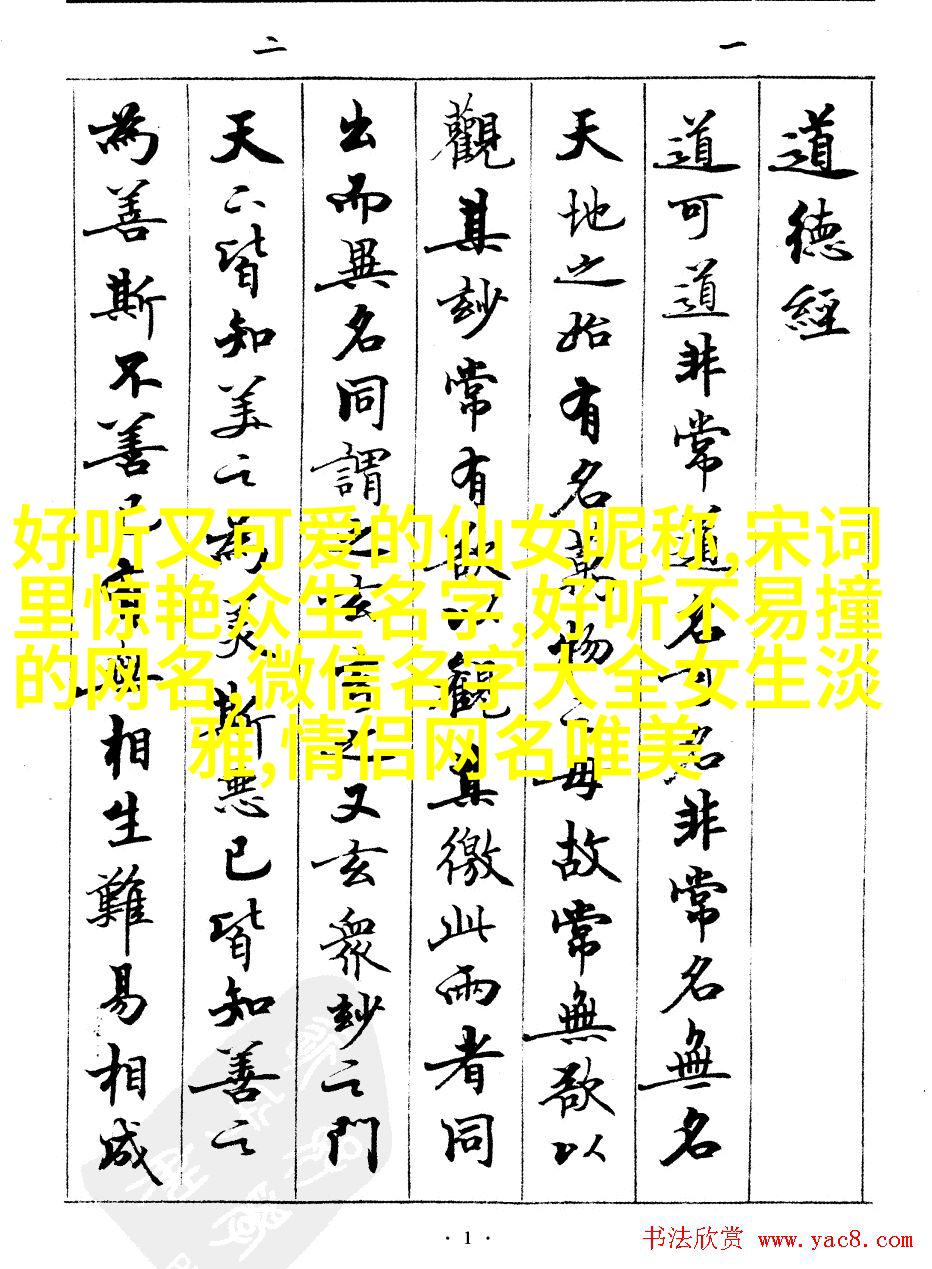 一
二
道德經
道可道非常道名可名非常名無名
天地之始有名萬物之母故常無欲以
觀其玅常有欲以觀其徼此兩者同
出而異名同謂之玄玄之又玄衆玅之門
天下皆知美之為美斯惡已皆知善之
為善斯不善已有無相生難易相成
好听又可爱的仙女昵称,宋词
里惊艳众生名字,好听不易撞
的网名,微信名字大全女生淡
雅,情侣网名唯美
· 1 ·
书法欣赏 www.yac8.com